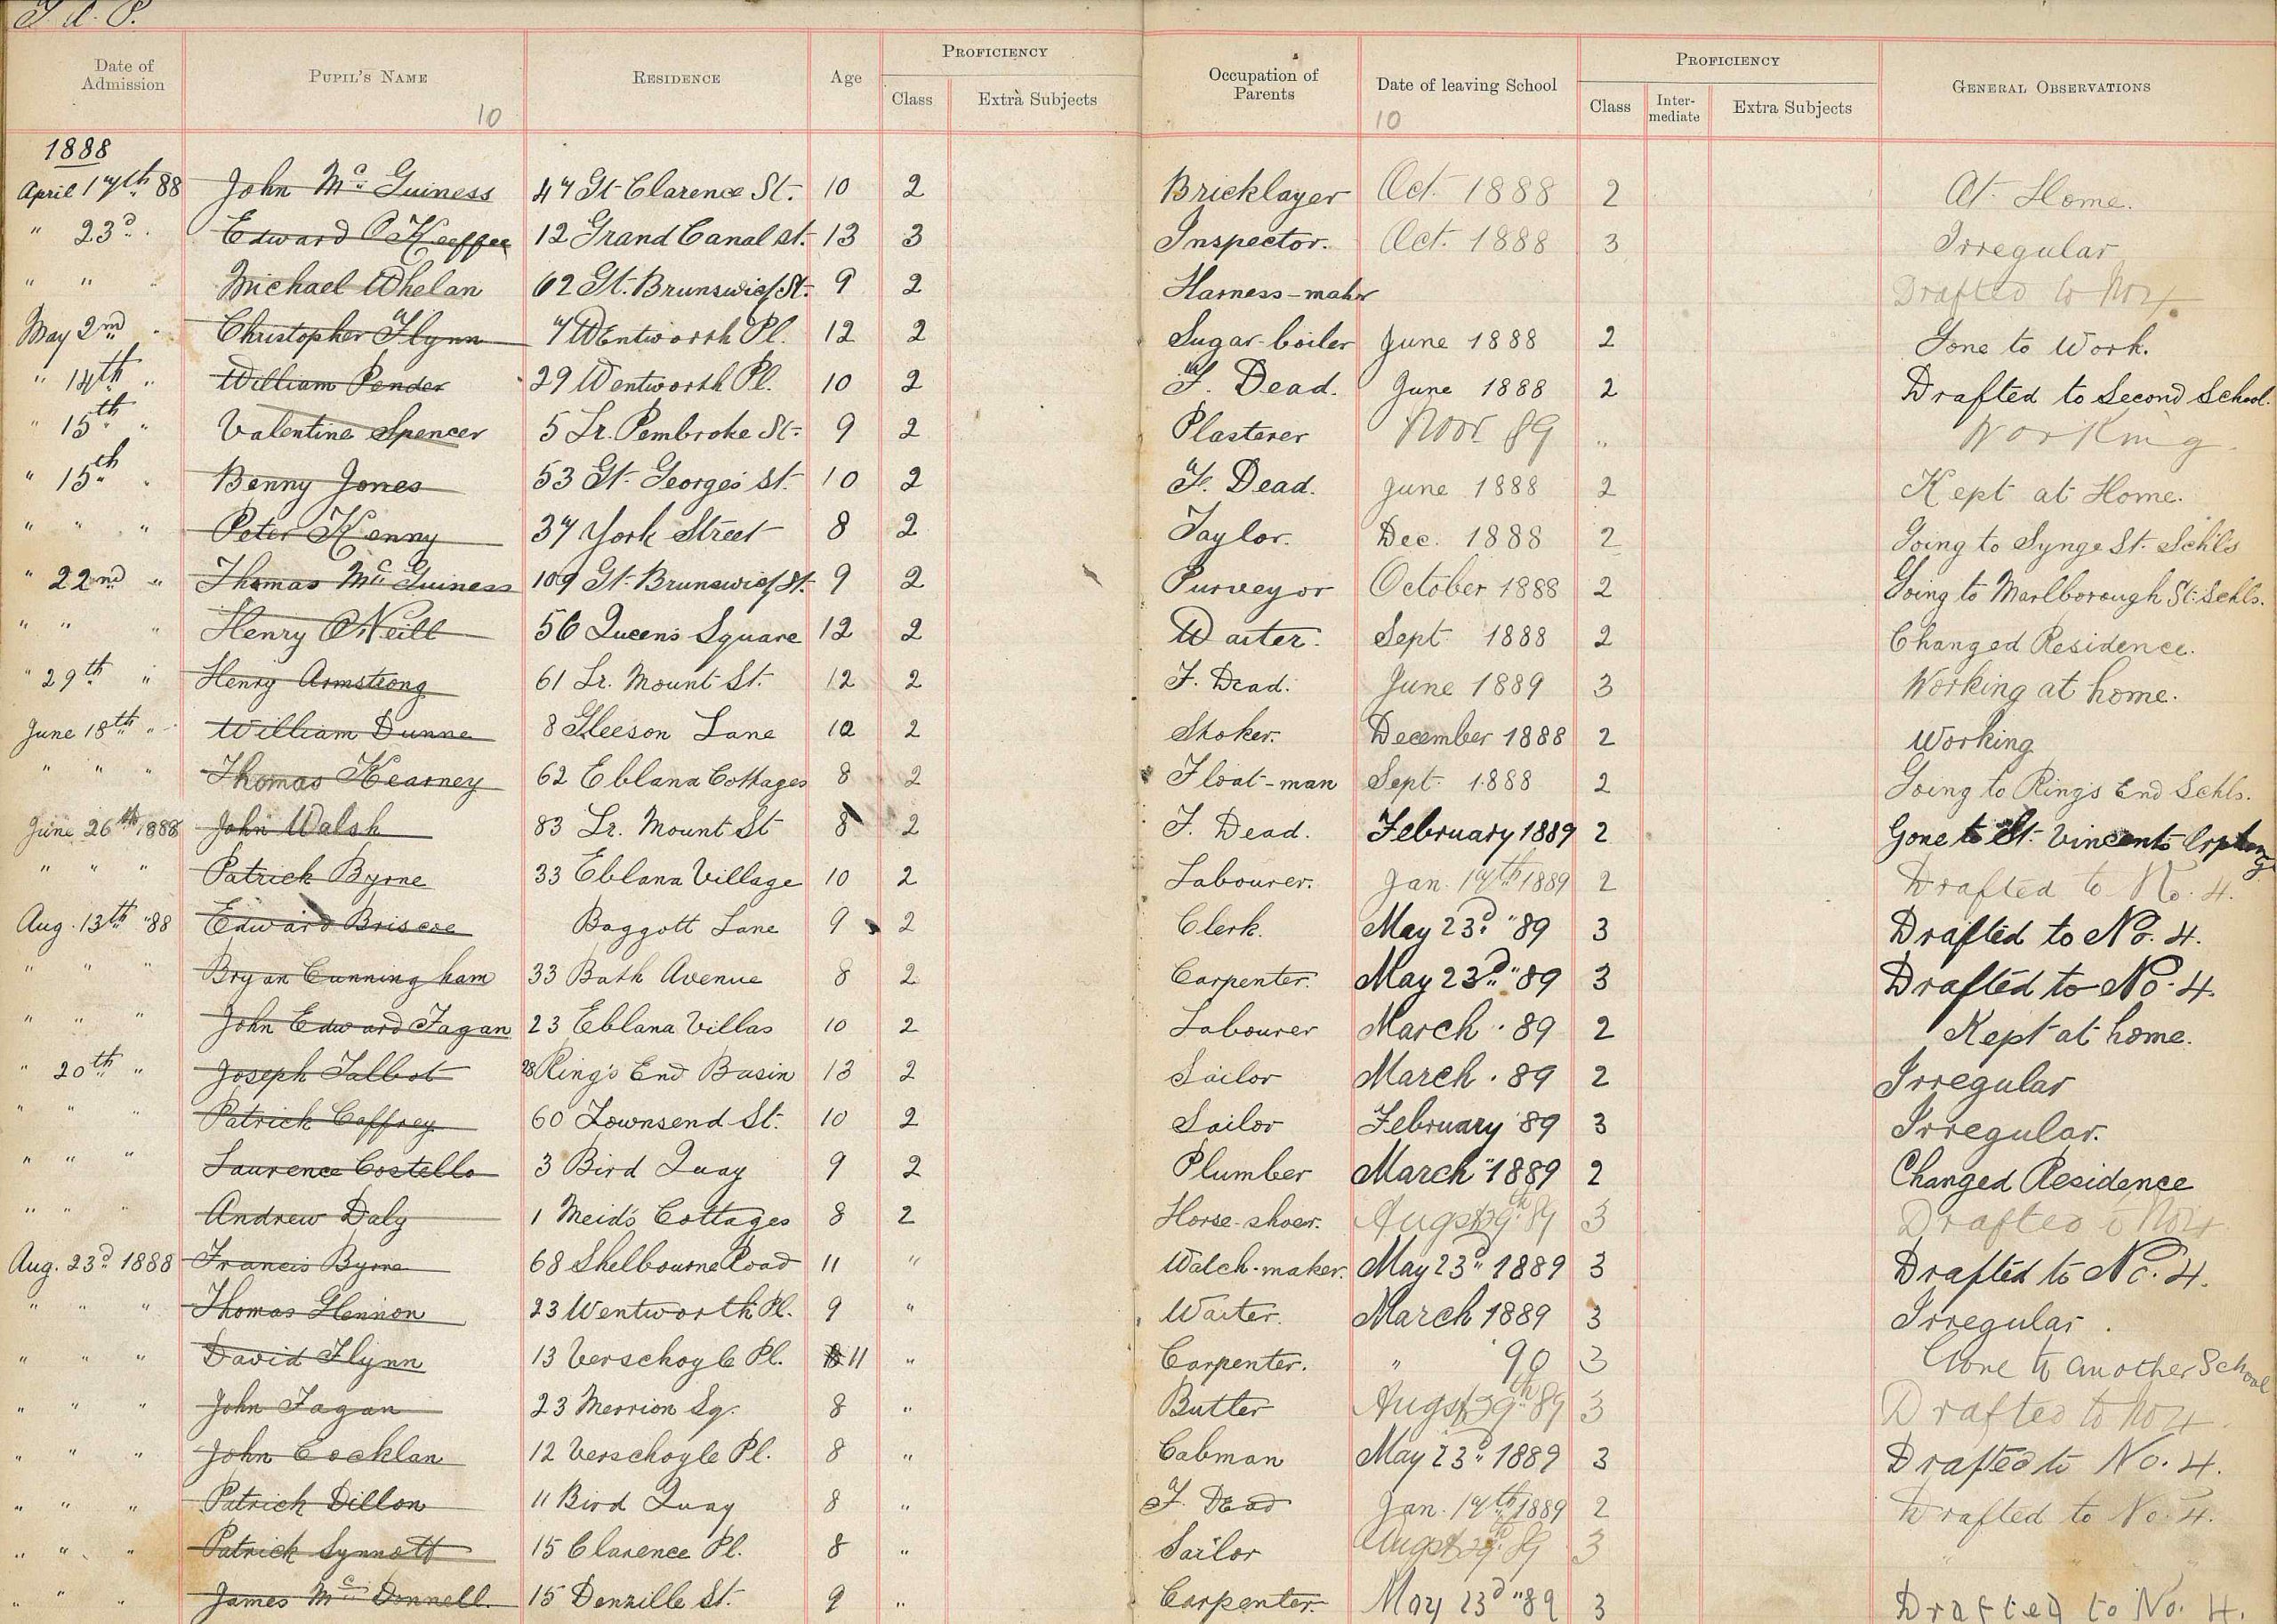 Date of Admission PUPIL'S NAME RESIDENCE Age PROFICIENCY Class Extra Subjects Occupation of Parents Date of leaving School PROFICIENCY Class Inter-mediate Extra Subjects GENERAL OBSERVATIONS
10 10
1888
April 17th 88 John Mc Guiness 47 Gt Clarence St. 10 2 Bricklayer Oct. 1888 2 At Home.
" 23d. Edward O'Keeffee 12 Grand Canal st. 13 3 Inspector. Oct. 1888 3 Irregular
" " Michael Whelan 62 Gt. Brunswick St. 9 2 Harness-maker Drafted to No 4
May 2nd " Christopher Flynn 7 Wentworth Pl. 12 2 Sugar-boiler June 1888 2 Gone to Work.
" 14th " William Pender 29 Wentworth Pl. 10 2 F. Dead. June 1888 2 Drafted to Second School.
" 15th " Valentine Spencer 5 Lr. Pembroke St. 9 2 Plasterer Novr 89 " Working
" 15th " Benny Jones 53 Gt. Georges St. 10 2 F. Dead. June 1888 2 Kept at Home.
" " " Peter Kenny 37 York Street 8 2 Taylor. Dec. 1888 2 Going to Synge St. Schls
" 22nd " Thomas Mc Guiness 109 Gt. Brunswick St. 9 2 Purveyor October 1888 2 Going to Marlborough St. Schls.
" " " Henry O'Neill 56 Queen's Square 12 2 Waiter. Sept. 1888 2 Changed Residence.
" 29th " Henry Armstrong 61 Lr. Mount St. 12 2 F. Dead. June 1889 3 Working at home.
June 18th " William Dunne 8 Gleeson Lane 10 2 Stoker. December 1888 2 Working
" " " Thomas Kearney 62 Eblana Cottages 8 2 Float-man Sept. 1888 2 Going to Rings End Schls.
June 26th 1888 John Walsh 83 Lr. Mount St 8 2 F. Dead. February 1889 2 Gone to St. Vincents
" " " Patrick Byrne 33 Eblana Village 10 2 Labourer. Jan. 17th 1889 2 Drafted to No. 4.
Aug. 13th "88 Edward Briscoe Baggott Lane 9 2 Clerk. May 23d. "89 3 Drafted to No. 4.
" " " Bryan Cunningham 33 Bath Avenue 8 2 Carpenter. May 23d. "89 3 Drafted to No. 4.
" " " John Edward Fagan 23 Eblana Villas 10 2 Labourer March . 89 2 Kept at home.
" 20th " Joseph Talbot 28 Ring's End Basin 13 2 Sailor March . 89 2 Irregular
" " " Patrick Caffrey 60 Townsend St. 10 2 Sailor February 89 3 Irregular.
" " " Laurence Costello 3 Bird Quay 9 2 Plumber March "1889 2 Changed Residence
" " " Andrew Daly 1 Meid's Cottages 8 2 Horse-shoer. Augst 29th 89 3 Drafted to No 4
Aug. 23d. 1888 Francis Byrne 68 Shelbourne Road 11 " Watch-maker. May 23d. 1889 3 Drafted to No. 4.
" " " Thomas Glennon 23 Wentworth Pl. 9 " Waiter. March 1889 3 Irregular.
" " " David Flynn 13 Verschoyle Pl. 11 " Carpenter. " 90 3 Gone to another School
" " " John Fagan 23 Merrion Sq. 8 " Butler Augst 29th 89 3 Drafted to No 4.
" " " John Cocklan 12 Verschoyle Pl. 8 " Cabman May 23d. 1889 3 Drafted to No. 4.
" " " Patrick Dillon 11 Bird Quay 8 " F. Dead Jan. 17th 1889 2 Drafted to No. 4.
" " " Patrick Synnott 15 Clarence Pl. 8 " Sailor Augst 29th 89 3
" " " James Mc Donnell. 15 Denzille St. 9 " Carpenter. May 23d "89 3 Drafted to No. 4